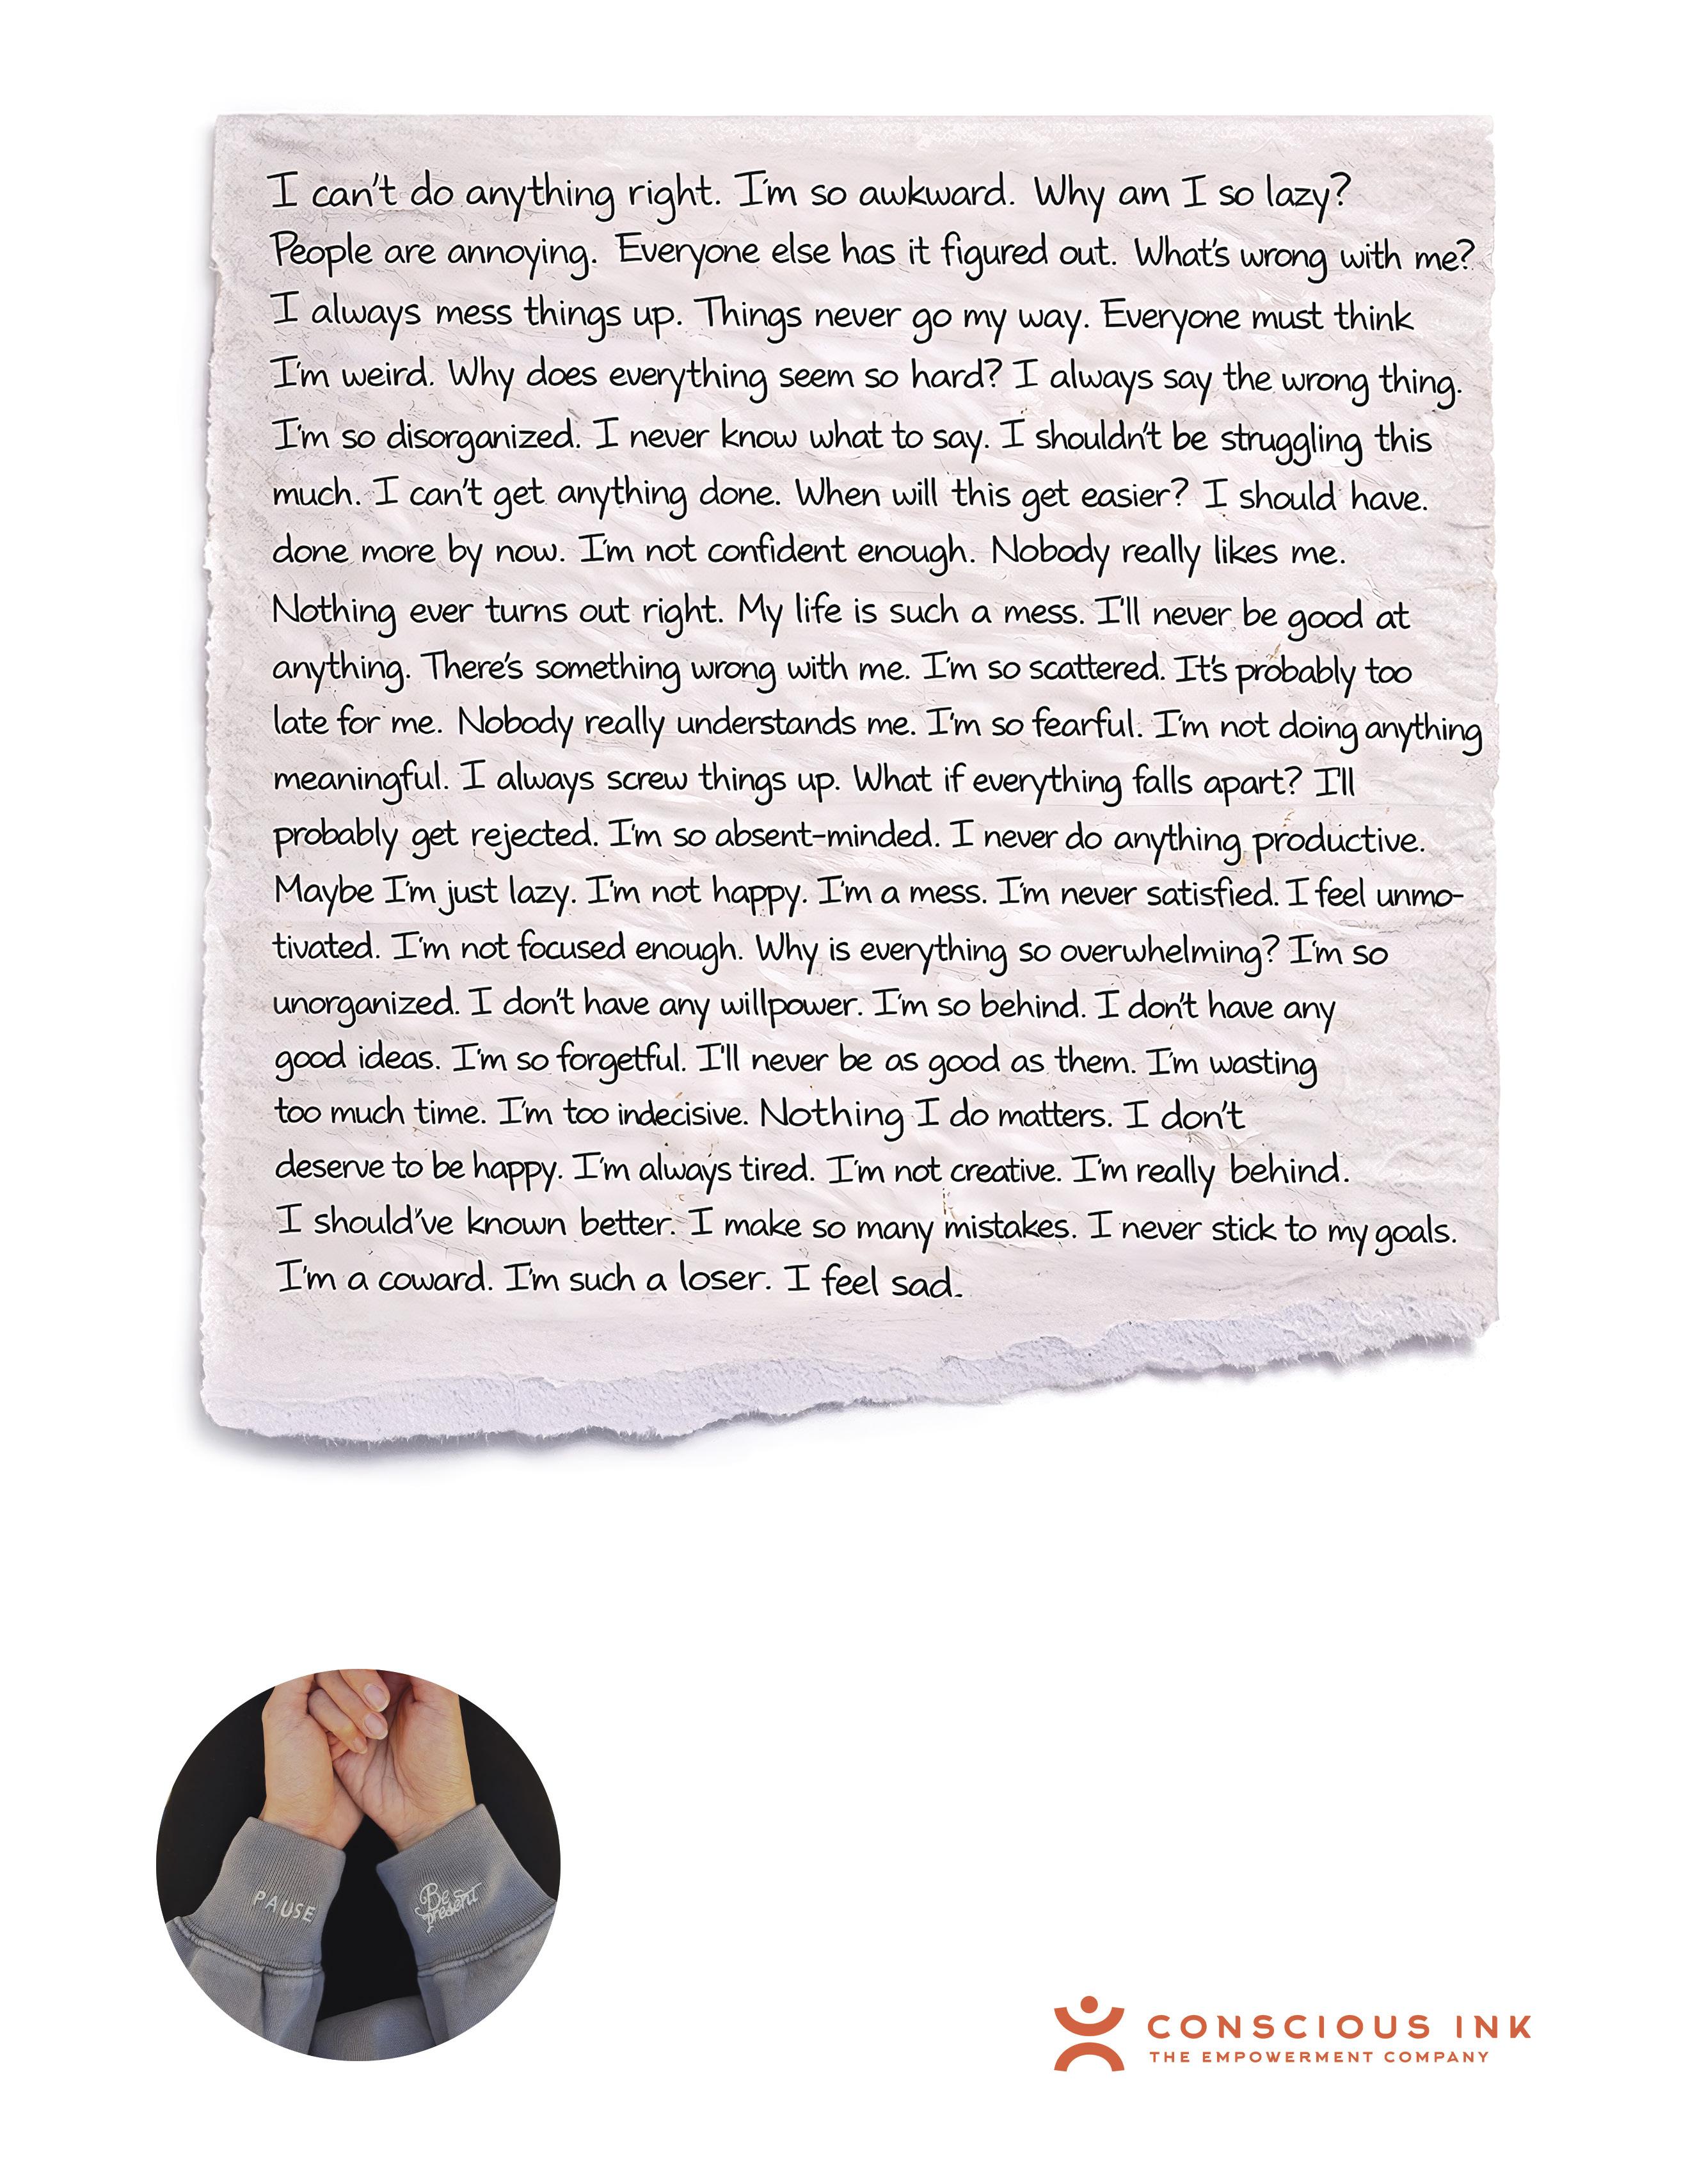 I can't do anything right. I'm so awkward. Why am I so lazy?
People are annoying. Everyone else has it figured out. What's wrong with me?
I always mess things up. Things never go my way. Everyone must think
I'm weird. Why does everything seem so hard? I always say the wrong thing.
I'm so disorganized. I never know what to say. I shouldn't be struggling this
much. I can't get anything done. When will this get easier? I should have.
done more by now. I'm not confident enough. Nobody really likes me.
Nothing ever turns out right. My life is such a mess. I'll never be good at
anything. There's something wrong with me. I'm so scattered. It's probably too
late for me. Nobody really understands me. I'm so fearful. I'm not doing anything
meaningful. I always screw things up. What if everything falls apart? I'll
probably get rejected. I'm so absent-minded. I never do anything productive.
Maybe I'm just lazy. I'm not happy. I'm a mess. I'm never satisfied. I feel unmo-
tivated. I'm not focused enough. Why is everything so overwhelming? I'm so
unorganized. I don't have any willpower. I'm so behind. I don't have any
good ideas. I'm so forgetful. I'll never be as good as them. I'm wasting
too much time. I'm too indecisive. Nothing I do matters. I don't
deserve to be happy. I'm always tired. I'm not creative. I'm really behind.
I should've known better. I make so many mistakes. I never stick to my goals.
I'm a coward. I'm such a loser. I feel sad.
PAUSE
Be
present
CONSCIOUS INK
THE EMPOWERMENT COMPANY